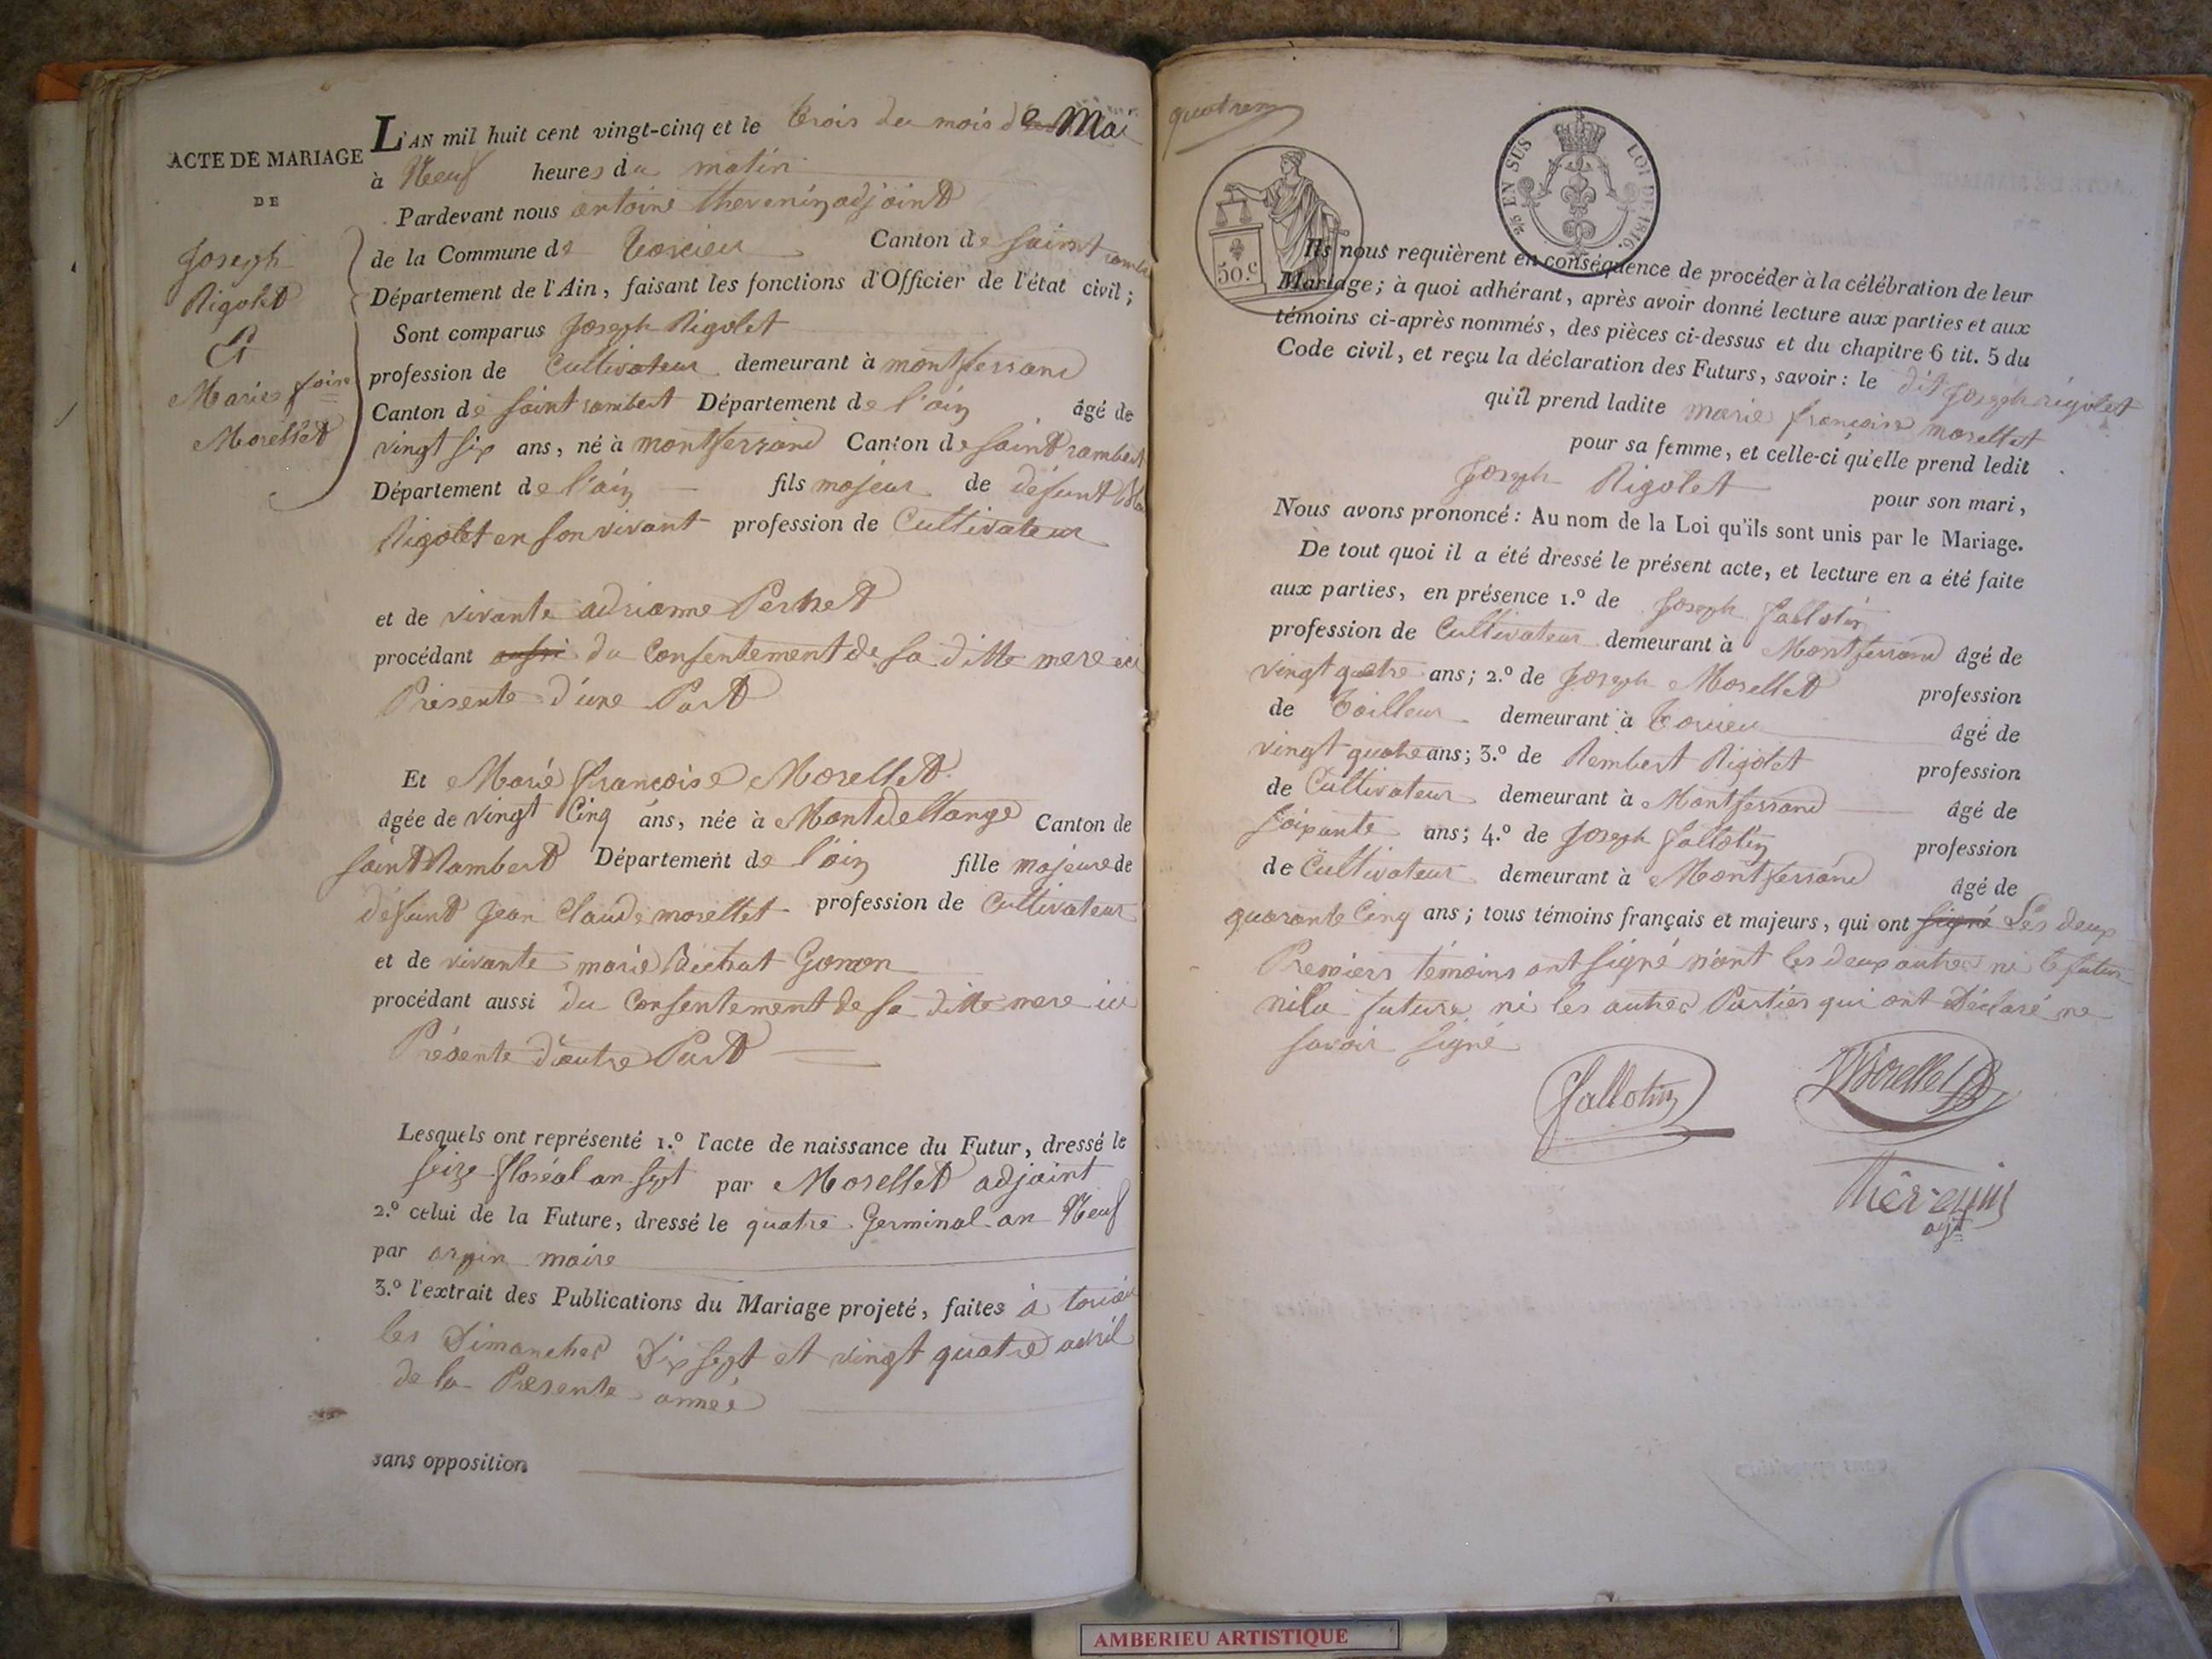 ACTE DE MARIAGE
DE
Joseph
Rigolet
Et
Marie foise
Morellet
L'AN mil huit cent vingt-cinq et le trois du mois de Mai
à Neuf heures du matin
Pardevant nous antoine thevenin adjoint
de la Commune de torcieu Canton de saint rambert
Département de l'Ain, faisant les fonctions d'Officier de l'état civil;
Sont comparus Joseph Rigolet
profession de Cultivateur demeurant à montferrand
Canton de saint rambert Département de l'ain âgé de
vingt six ans, né à montferrand Canton de saint rambert
Département de l'ain fils majeur de défunt
Rigolet en son vivant profession de Cultivateur
et de vivante adrianne Pernet
procédant aussi du Consentement de sa ditte mere ici
Présente d'une Part
Et Marie françoise Morellet
âgée de vingt Cinq ans, née à Montdellange Canton de
saint Rambert Département de l'ain fille majeure de
défunt Jean Claude morellet profession de Cultivateur
et de vivante marie Béchat Gonon
procédant aussi du Consentement de sa ditte mere ici
Présente d'autre Part
Lesquels ont représenté 1.º l'acte de naissance du Futur, dressé le
seize floréal an sept par Morellet adjoint
2.º celui de la Future, dressé le quatre Germinal an Neuf
par orsin maire
3.º l'extrait des Publications du Mariage projeté, faites à torcieu
les Dimanches Dix sept et vingt quatre avril
de la Présente année
sans opposition
2/5 EN SUS LOI DE 1816.
50.c
Ils nous requièrent en conséquence de procéder à la célébration de leur
Mariage; à quoi adhérant, après avoir donné lecture aux parties et aux
témoins ci-après nommés, des pièces ci-dessus et du chapitre 6 tit. 5 du
Code civil, et reçu la déclaration des Futurs, savoir: le dit Joseph rigolet
qu'il prend ladite marie françoise morellet
pour sa femme, et celle-ci qu'elle prend ledit
Joseph Rigolet pour son mari,
Nous avons prononcé: Au nom de la Loi qu'ils sont unis par le Mariage.
De tout quoi il a été dressé le présent acte, et lecture en a été faite
aux parties, en présence 1.º de Joseph fallotin
profession de Cultivateur demeurant à Montferrand âgé de
vingt quatre ans; 2.º de Joseph Morellet profession
de tailleur demeurant à torcieu âgé de
vingt quatre ans; 3.º de Rembert Rigolet profession
de Cultivateur demeurant à Montferrand âgé de
soixante ans; 4.º de Joseph fallotin profession
de Cultivateur demeurant à Montferrand âgé de
quarante Cinq ans; tous témoins français et majeurs, qui ont signé Les deux
Premiers témoins ont signé n'ont les deux autres ni le futur
ni la future ni les autres Parties qui ont Déclaré ne
savoir signé
fallotin Morellet
Thévenin
adjt
AMBERIEU ARTISTIQUE